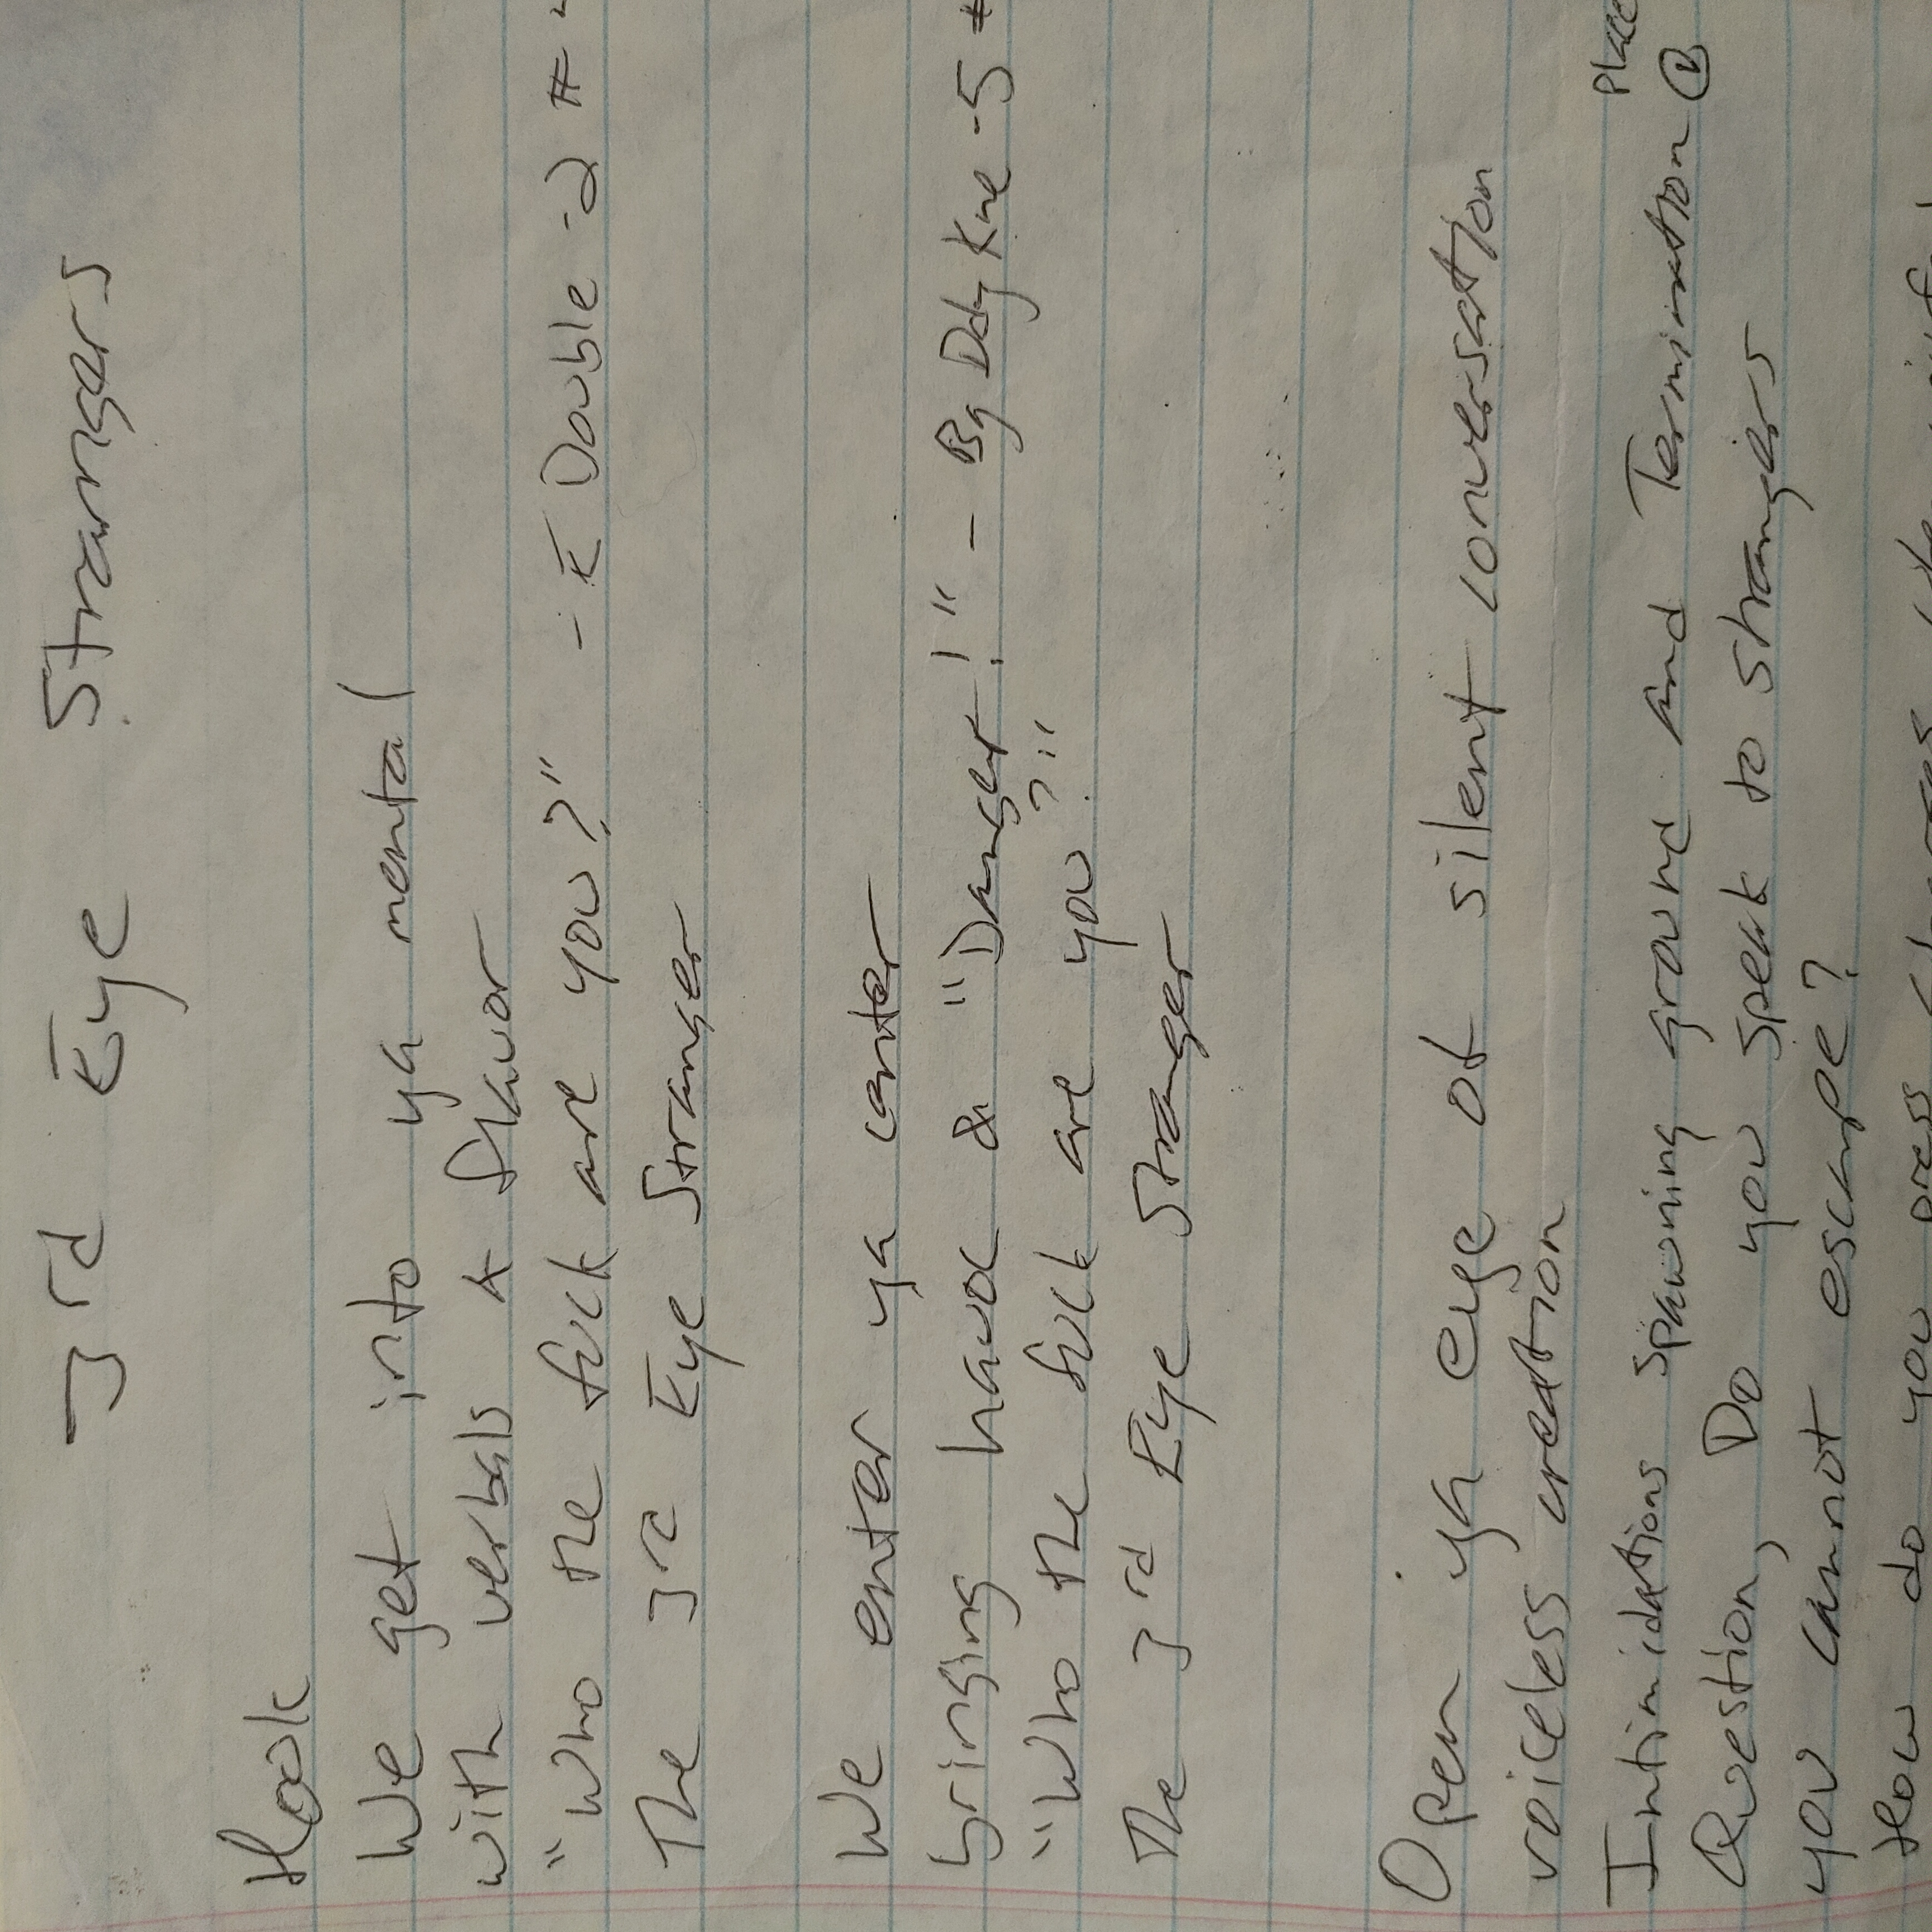 3rd Eye Strangers
Hook
We get into ya mental
with verbals A flavor
"Who the fuck are you?" - E Double -2 #
The 3rd Eye Stranger
We enter ya canter
bringing havoc & "Danger!" - Bg Ddy Kne -5 #
"Who the fuck are you?"
The 3rd Eye Stranger
Open ya eye of silent conversation
voiceless creation
Place
Intimidations spawning ground and Termination
Question, Do you speak to strangers
you cannot escape?
How do you press